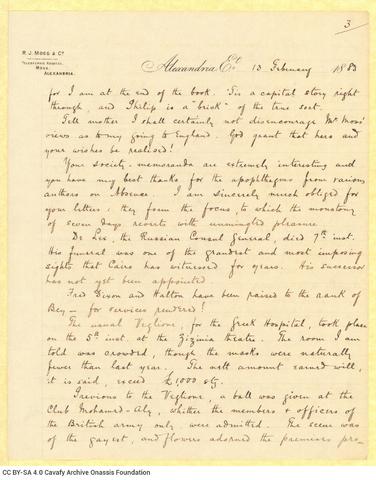 3
R. J. MOSS & Co.
TELEGRAPHIC ADDRESS,
MOSS.
ALEXANDRIA.
Alexandria Et. 13 February 1883
for I am at the end of the book. 'Tis a capital story right
through, and Philip is a "brick" of the true sort.
Tell mother I shall certainly not disencourage Mr Moss'
views as to my going to England. God grant that hers and
your wishes be realised!
Your society-memoranda are extremely interesting and
you have my best thanks for the apophthegms from various
authors on Absence. I am sincerely much obliged for
your letters: they form the focus, to which the monotony
of seven days reverts with unmingled pleasure.
De Lex, the Russian Consul General, died 7th inst.
His funeral was one of the grandest and most imposing
sights that Cairo has witnessed for years. His successor
has not yet been appointed.
Fred Dixon and Halton have been raised to the rank of
Bey — for services rendered!
The usual Veglione, for the Greek Hospital, took place
on the 5th inst. at the Zizinia theatre. The room I am
told was crowded, though the masks were naturally
fewer than last year. The nett amount earned will,
it is said, exceed £1,000 stg.
Previous to the Veglione, a ball was given at the
Club Mohamed-Aly, whither the members & officers of
the British army only were admitted. The scene was
of the gayest, and flowers adorned the premises pro-
CC BY-SA 4.0 Cavafy Archive Onassis Foundation